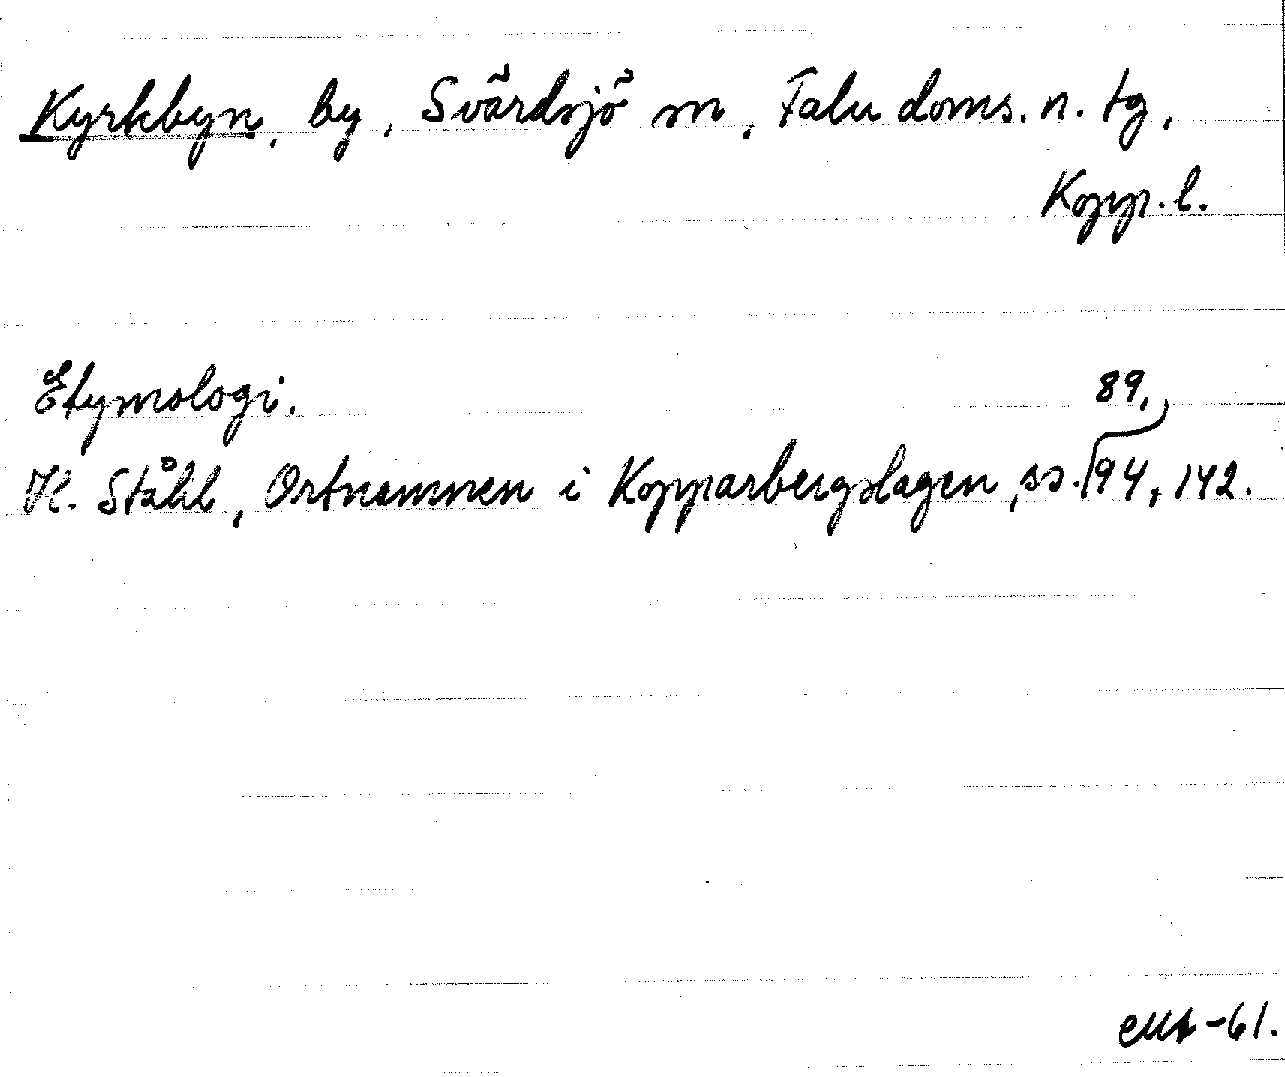 Kyrkbyn, by, Svärdsjö sn, Falu doms. n. tg,
Kopp. l.
Etymologi.
H. Ståhl, Ortnamnen i Kopparbergslagen, ss. 89, 94, 142.
-61.